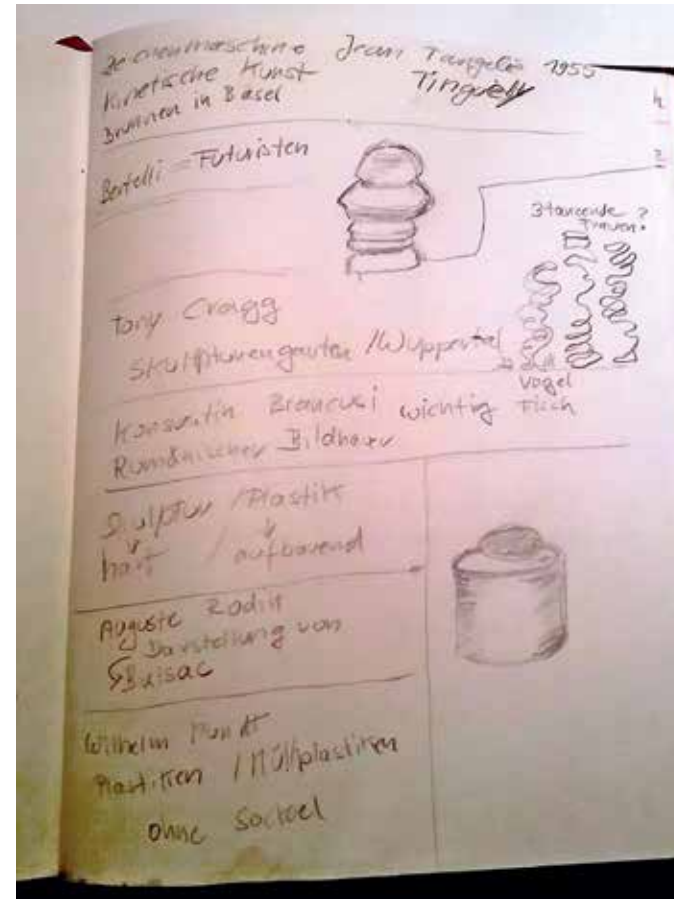 Zeichenmaschine Jean Tangelis 1955
Kinetische Kunst Tinguely
Brunnen in Basel
Bertelli = Futuristen
3 tanzende ?
Frauen?
Tony Cragg
Skulpturengarten / Wuppertal
Vogel
Konstantin Brancusi wichtig Fisch
Rumänischer Bildhauer
Skulptur / Plastik
hart / aufbauend
Auguste Rodin
Darstellung von
Balsac
Wilhelm Mundt
Plastiken / Müllplastiken
ohne Sockel